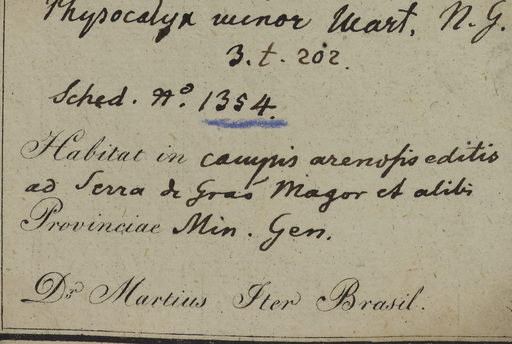 Physocalyx minor Mart. N. G.
3. t. 202.
Sched. No. 1354.
Habitat in campis arenosis editis
ad Serra de Graõ Magor et alibi
Provinciae Min. Gen.
Dr. Martius Iter Brasil.